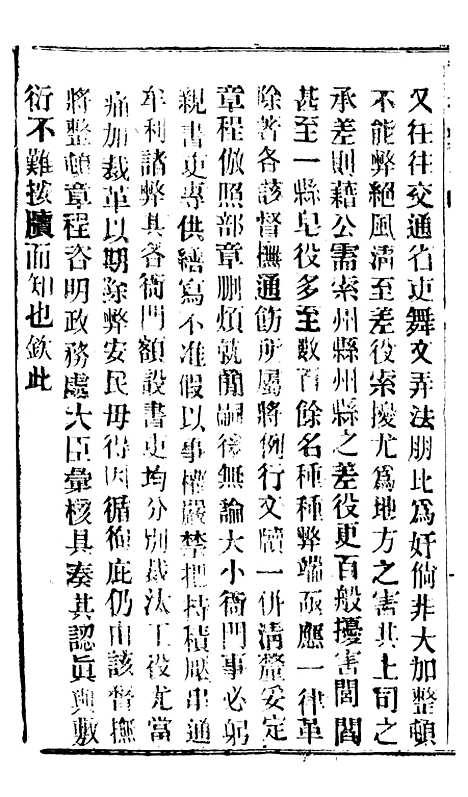 又往往交通省吏舞文弄法朋比為奸倘非大加整頓
不能弊絕風淸至差役索擾尤為地方之害其上司之
承差則藉公需索州縣州縣之差役更百般擾害閭閻
甚至一縣皂役多至數百餘名種種弊端亟應一律革
除著各該督撫通飭所屬將例行文牘一併淸釐妥定
章程倣照部章删煩就簡嗣後無論大小衙門事必躬
親書吏專供繕寫不准假以事權嚴禁把持積壓串通
牟利諸弊其各衙門額設書吏均分別裁汰差役尤當
痛加裁革以期除弊安民毋得因循徇庇仍由該督撫
將整頓章程咨明政務處大臣彙核具奏其認眞與敷
衍不難按牘而知也欽此